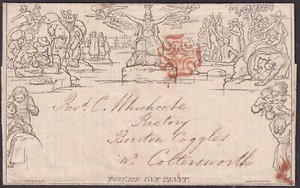 Revd. C. Whichcote
Rectory
Burton Coggles
Nr. Coltersworth
POSTAGE ONE PENNY.